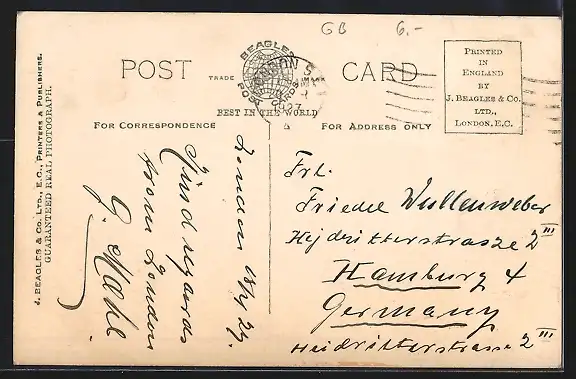 GB 6.-
POST CARD
TRADE MARK
BEAGLES
POST CARDS
BEST IN THE WORLD
LONDON S.
1927
FOR CORRESPONDENCE
FOR ADDRESS ONLY
PRINTED
IN
ENGLAND
BY
J. BEAGLES & Co.
LTD.,
LONDON, E.C.
J. BEAGLES & Co. LTD., E.C., PRINTERS & PUBLISHERS.
GUARANTEED REAL PHOTOGRAPH.
London
Kind regards
from London
G.
Frl.
Friedel Wullenweber
Heidritterstrasze 2 III
Hamburg 4
Germany
Heidritterstrasse 2 III